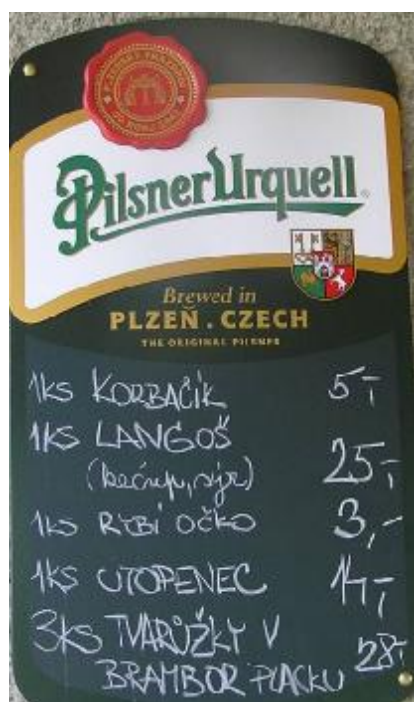 Pilsner Urquell
Brewed in
PLZEŇ . CZECH
THE ORIGINAL PILSNER
1ks KORBAČÍK 5,-
1KS LANGOŠ
(kečup, sýr) 25,-
1ks RYBÍ OČKO 3,-
1KS UTOPENEC 14,-
3ks TVARŮŽKY V
BRAMBOR PLACKU 28,-